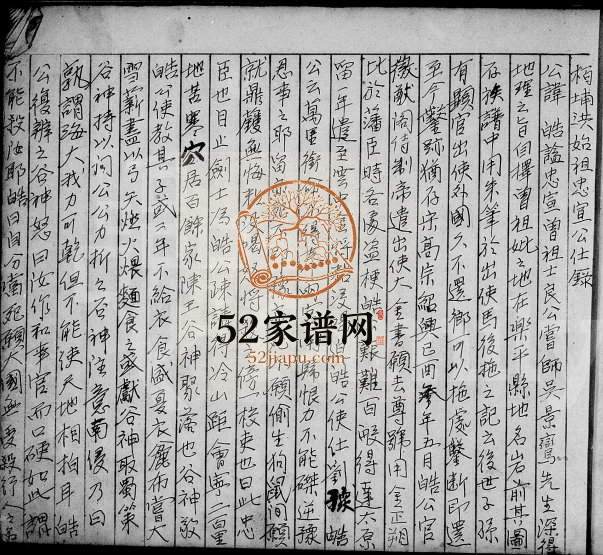 柏埔洪始祖忠宣公仕錄
公諱 皓謚忠宣曾祖士良公嘗師吳景鸞先生深得
地理之旨自擇曾祖妣之地在樂平縣地名岩前其圖
存族譜中用朱筆於出使馬後拖之記云後世子孫
有顯官出使外國久不還鄉可以拖處鑿斷即還
至今鑿跡猶存宋高宗紹興己酉叁年五月皓公官
徽猷閣待制帝遣出使大金書願去尊號用金正朔
比於藩臣時各處盜梗皓艱難百般得達太原
留一年遣至雲中 皓公使仕劉豫皓
公云萬里銜 恨力不能磔逆豫
忍事之耶留 願偷生狗鼠間願
就鼎鑊無悔 校吏也曰此忠
臣也目止劍士為皓公陳請 冷山距會寧二百里
地苦寒穴居百餘家陳王谷神聚落也谷神敬
皓公使教其子或二年不給衣食盛夏衣麤布嘗大
雪薪盡以弓矢燃火煨麵食之或獻谷神取蜀策
谷神持以問公公力折之谷神注意南侵乃曰
孰謂海大我力可乾但不能使天地相拍耳皓
公復辨之谷神怒曰汝作和事官而口硬如此謂
不能殺汝耶皓曰自分當死顧大國無受殺行人之名
52家谱网
52jiapu.com